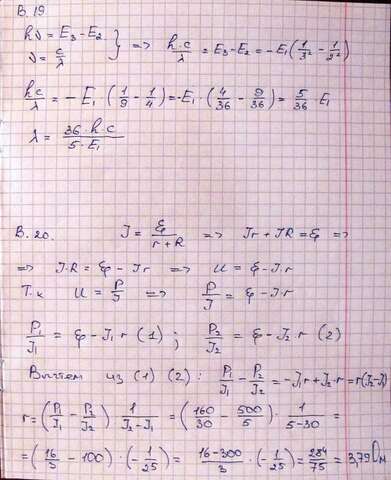 В. 19
hν = E₃ - E₂
ν = c/λ } => h·c/λ = E₃ - E₂ = -E₁(1/3² - 1/2²)
hc/λ = -E₁·(1/9 - 1/4) = -E₁·(4/36 - 9/36) = 5/36·E₁
λ = 36·h·c/5·E₁
В. 20. J = ℰ/r+R => Jr + JR = ℰ =>
=> J·R = ℰ - Jr => U = ℰ - J·r
Т.к U = P/J => P/J = ℰ - J·r
P₁/J₁ = ℰ - J₁r (1) ; P₂/J₂ = ℰ - J₂r (2)
Вычтем из (1) (2) : P₁/J₁ - P₂/J₂ = -J₁r + J₂·r = r(J₂-J₁)
r = (P₁/J₁ - P₂/J₂)·1/J₂-J₁ = (160/30 - 500/5)·1/5-30 =
= (16/3 - 100)·(-1/25) = 16-300/3·(-1/25) = 284/75 = 3,79 Ом